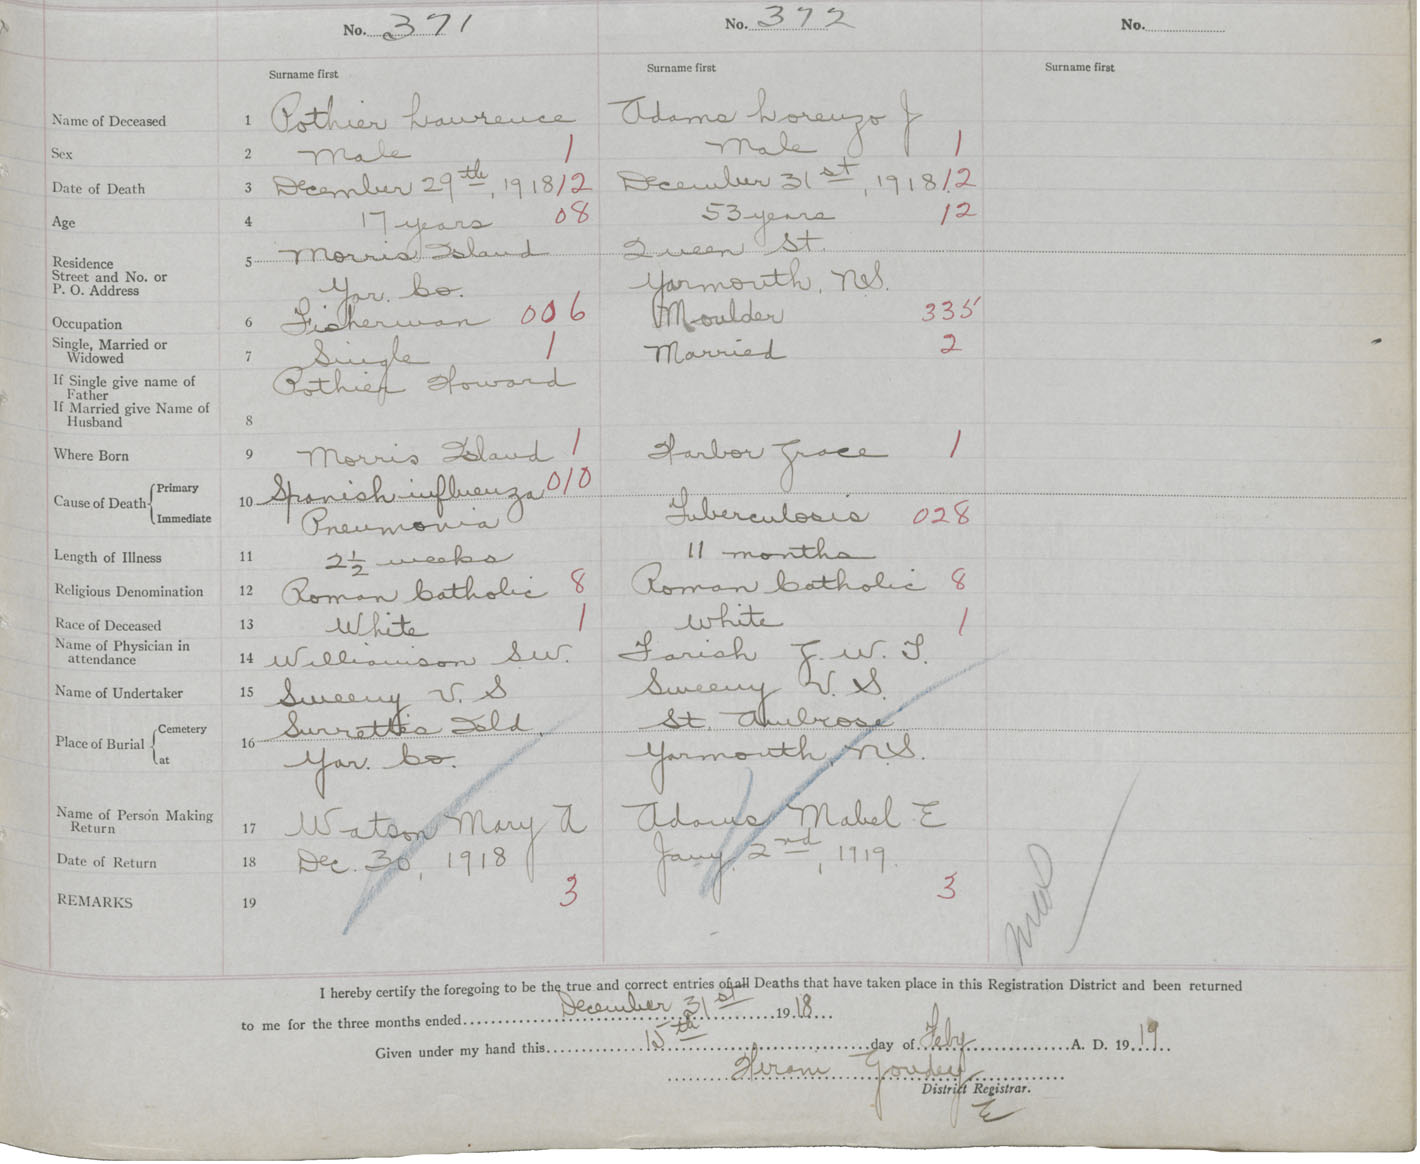 No. 371
No. 372
No.
Surname first
Surname first
Surname first
Name of Deceased 1 Pothier Lawrence Adams Lorenzo J
Sex 2 Male 1 Male 1
Date of Death 3 December 29th, 1918 12 December 31st, 1918 12
Age 4 17 years 08 53 years 12
Residence Street and No. or P. O. Address 5 Morris Island Queen St.
Yar. Co. Yarmouth, N.S.
Occupation 6 Fisherman 006 Moulder 335
Single, Married or Widowed 7 Single 1 Married 2
If Single give name of Father Pothier Howard
If Married give Name of Husband 8
Where Born 9 Morris Island 1 Harbor Grace 1
Cause of Death { Primary 10 Spanish influenza 010
Immediate Pneumonia Tuberculosis 028
Length of Illness 11 2½ weeks 11 months
Religious Denomination 12 Roman Catholic 8 Roman Catholic 8
Race of Deceased 13 White 1 White 1
Name of Physician in attendance 14 Williamson S.W. Farish G. W. T.
Name of Undertaker 15 Sweeny V. S Sweeny V. S.
Place of Burial { Cemetery 16 Surrettes Isld. St. Ambrose
at Yar. Co. Yarmouth, N.S.
Name of Person Making Return 17 Watson Mary A Adams Mabel E
Date of Return 18 Dec. 30, 1918 Jany. 2nd, 1919.
REMARKS 19 3 3
I hereby certify the foregoing to be the true and correct entries of all Deaths that have taken place in this Registration District and been returned
to me for the three months ended December 31st 1918
Given under my hand this 15th day of Feby A. D. 1919
Hiram Goudey
District Registrar.